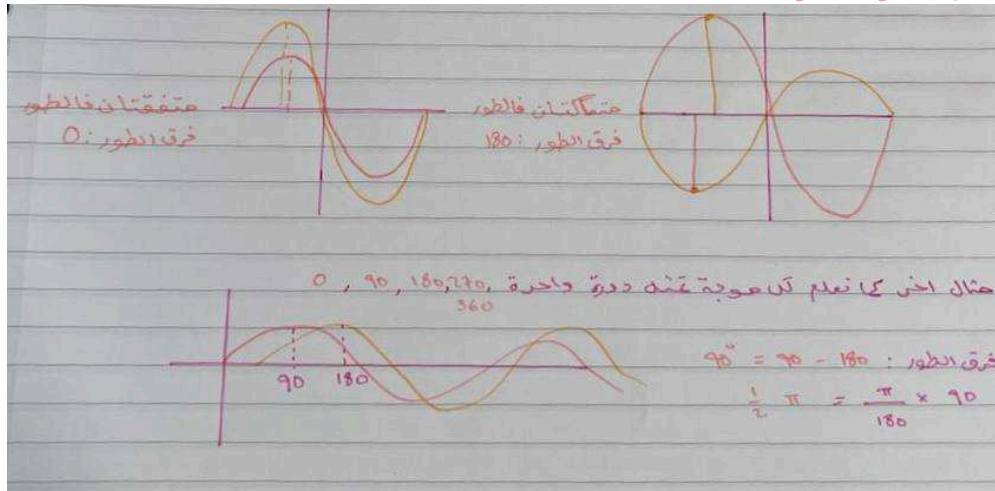 متفقتان فالطور
فرق الطور: 0
متعاكتان فالطور
فرق الطور: 180
مثال اخر كما نعلم كل موجة عنده دورة واحدة 0 , 90 , 180, 270,
360
90 180
فرق الطور: 180 - 90 = 90°
90 × π/180 = π 1/2